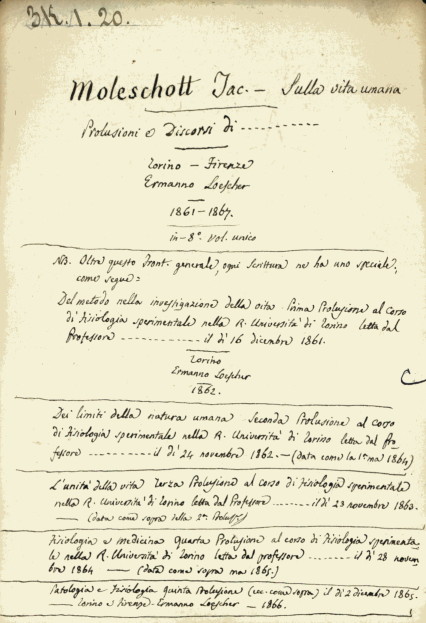 3K.1.20.
Moleschott Jac. — Sulla vita umana
Prolusioni e Discorsi di ----------
Torino — Firenze
Ermanno Loescher
1861—1867.
in-8º. vol. unico
NB. Oltre questo front. generale, ogni Scrittura ne ha uno speciale,
come segue=
Del metodo nella investigazione della vita Prima Prolusione al corso
di fisiologia sperimentale nella R. Università di Torino letta dal
Professore ------------ il dì 16 dicembre 1861.
Torino
Ermanno Loescher
1862.
C.
Dei limiti della natura umana Seconda Prolusione al corso
di fisiologia sperimentale nella R. Università di Torino letta dal Pro
fessore ---------- il dì 24 novembre 1862.—(data come la 1ª ma 1864)
L'unità della vita Terza Prolusione al corso di fisiologia sperimentale
nella R. Università di Torino letta dal Professore --------- il dì 23 novembre 1863.
— (data come sopra della 2ª.
Fisiologia e medicina quarta Prolusione al corso di fisiologia sperimenta
le nella R. Università di Torino letta dal professore -------- il dì 28 novem
bre 1864 — (data come sopra ma 1865.)
Patologia e Fisiologia quinta Prolusione (ecc. come sopra) il dì 2 dicembre 1865.
— Torino e Firenze - Ermanno Loescher — 1866.